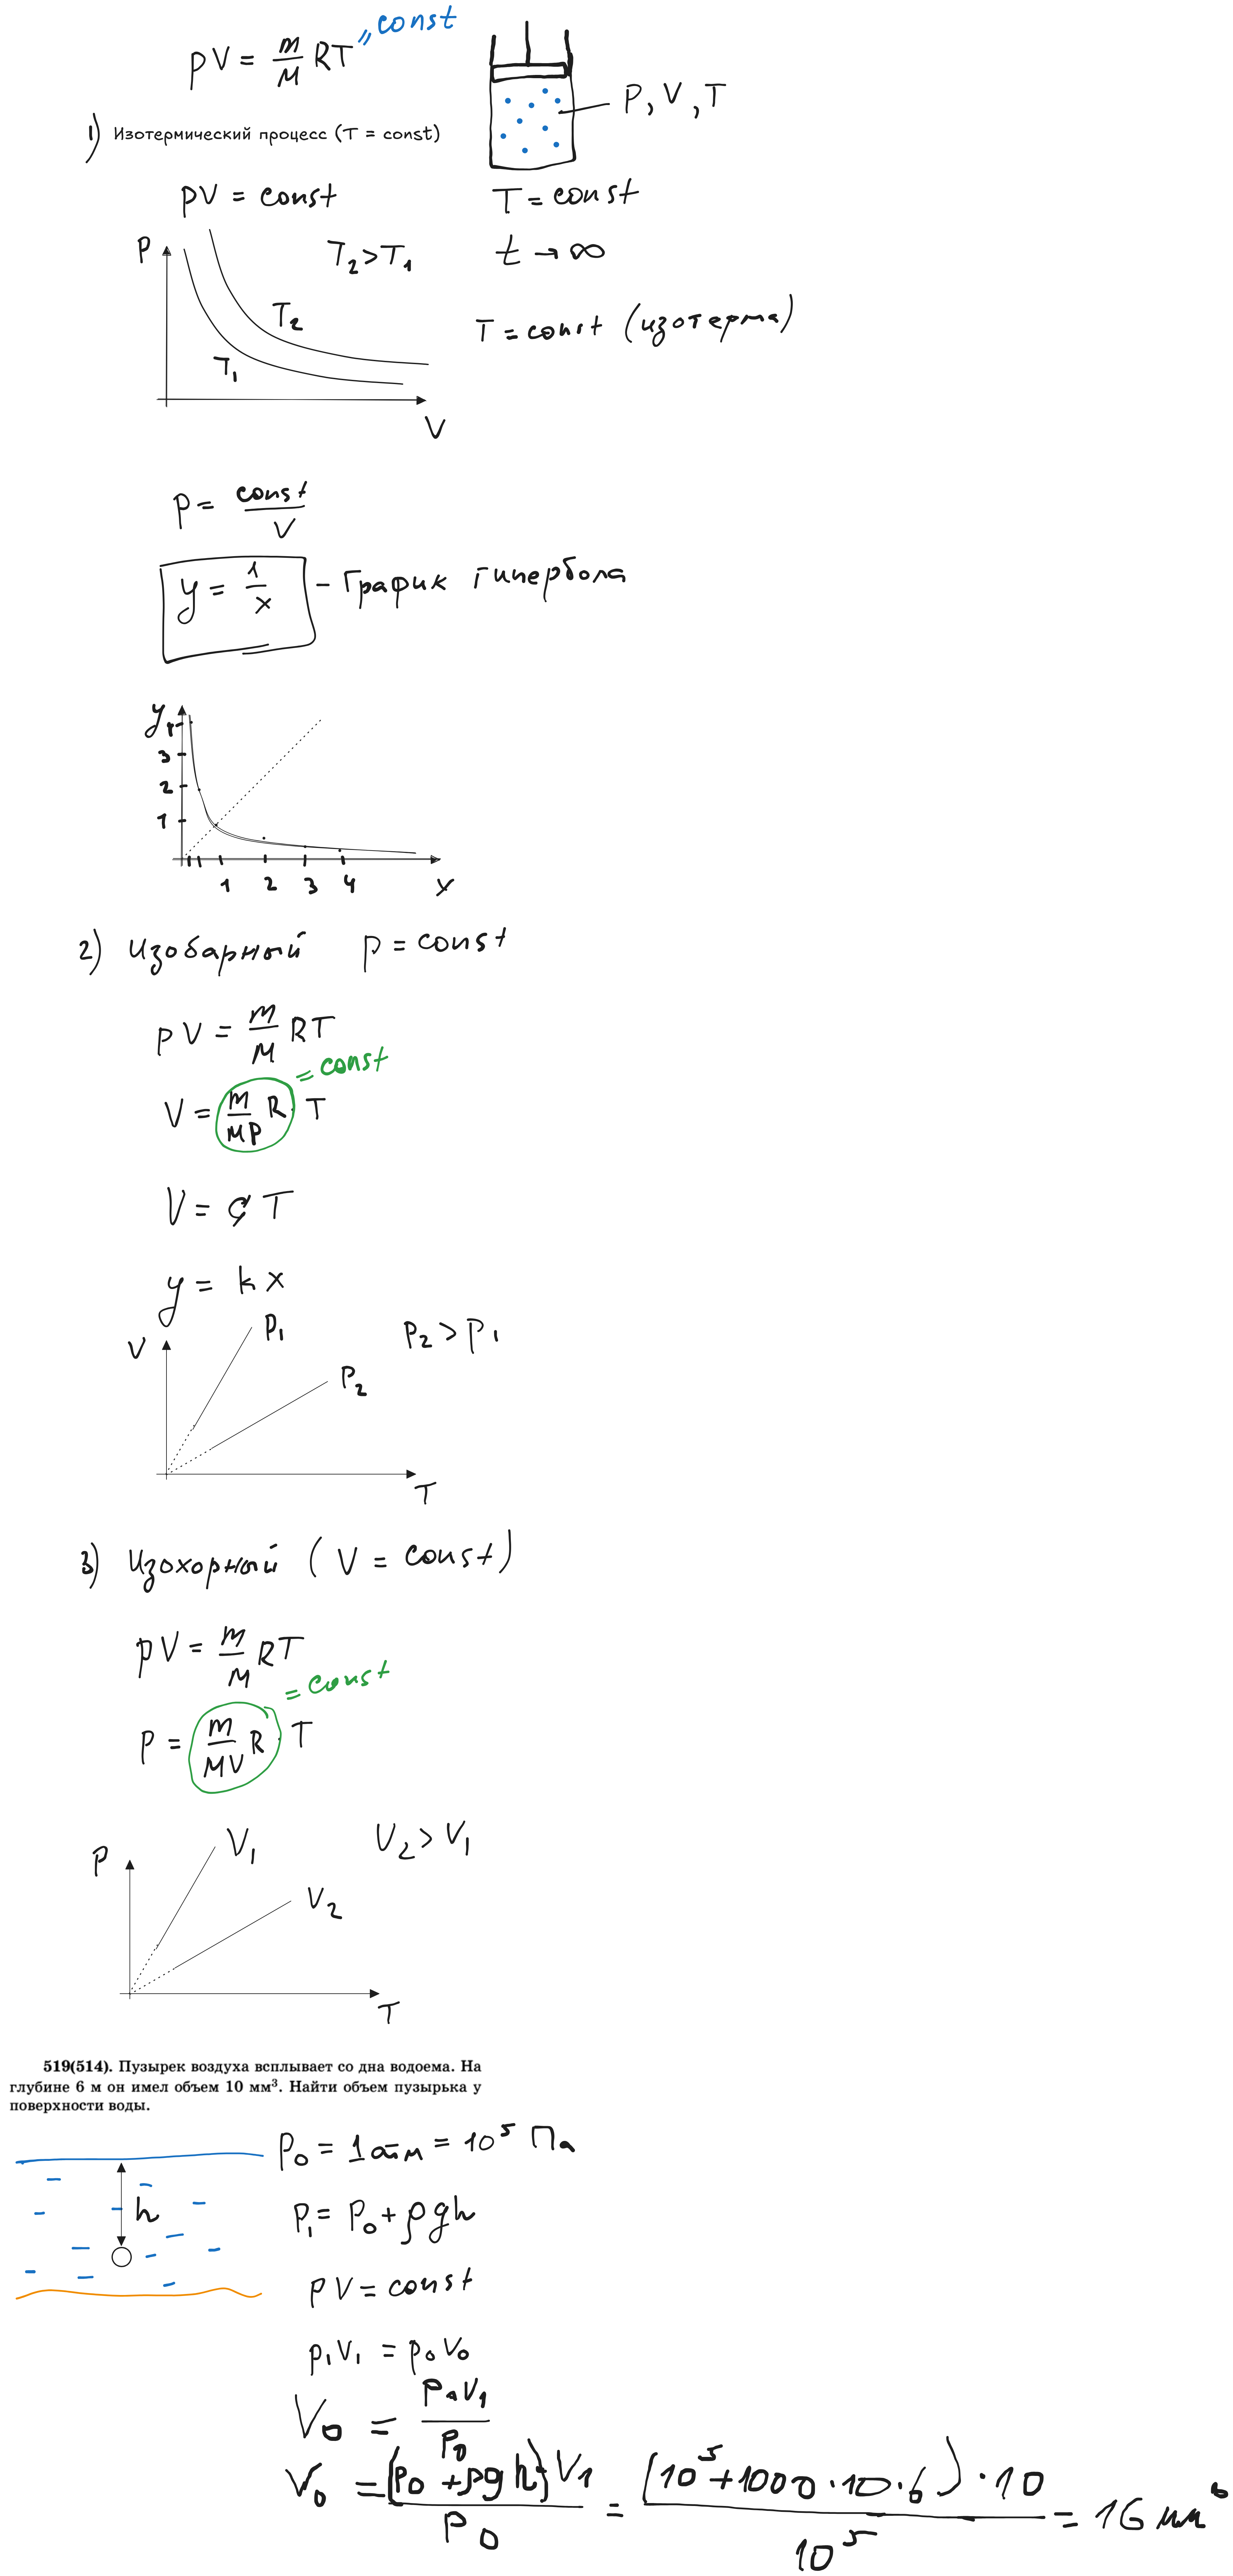 pV = m/M RT = const
P, V, T
1) Изотермический процесс (T = const)
pV = const
T = const
P
T₂ > T₁
t → ∞
T₂
T = const (изотерма)
T₁
V
P = const/V
y = 1/x - График гипербола
y
4
3
2
1
1 2 3 4
x
2) Изобарный p = const
pV = m/M RT
= const
V = m/Mp R · T
V = C T
y = kx
P₁
V
P₂ > P₁
P₂
T
3) Изохорный (V = const)
pV = m/M RT
= const
P = m/MV R · T
P
V₁
V₂ > V₁
V₂
T
519(514). Пузырек воздуха всплывает со дна водоема. На
глубине 6 м он имел объем 10 мм³. Найти объем пузырька у
поверхности воды.
P₀ = 1 атм = 10⁵ Па
h
P₁ = P₀ + ρgh
pV = const
p₁V₁ = p₀V₀
V₀ = P₁V₁/P₀
V₀ = (P₀ + ρgh)V₁/P₀ = (10⁵ + 1000 · 10 · 6) · 10/10⁵ = 16 мм